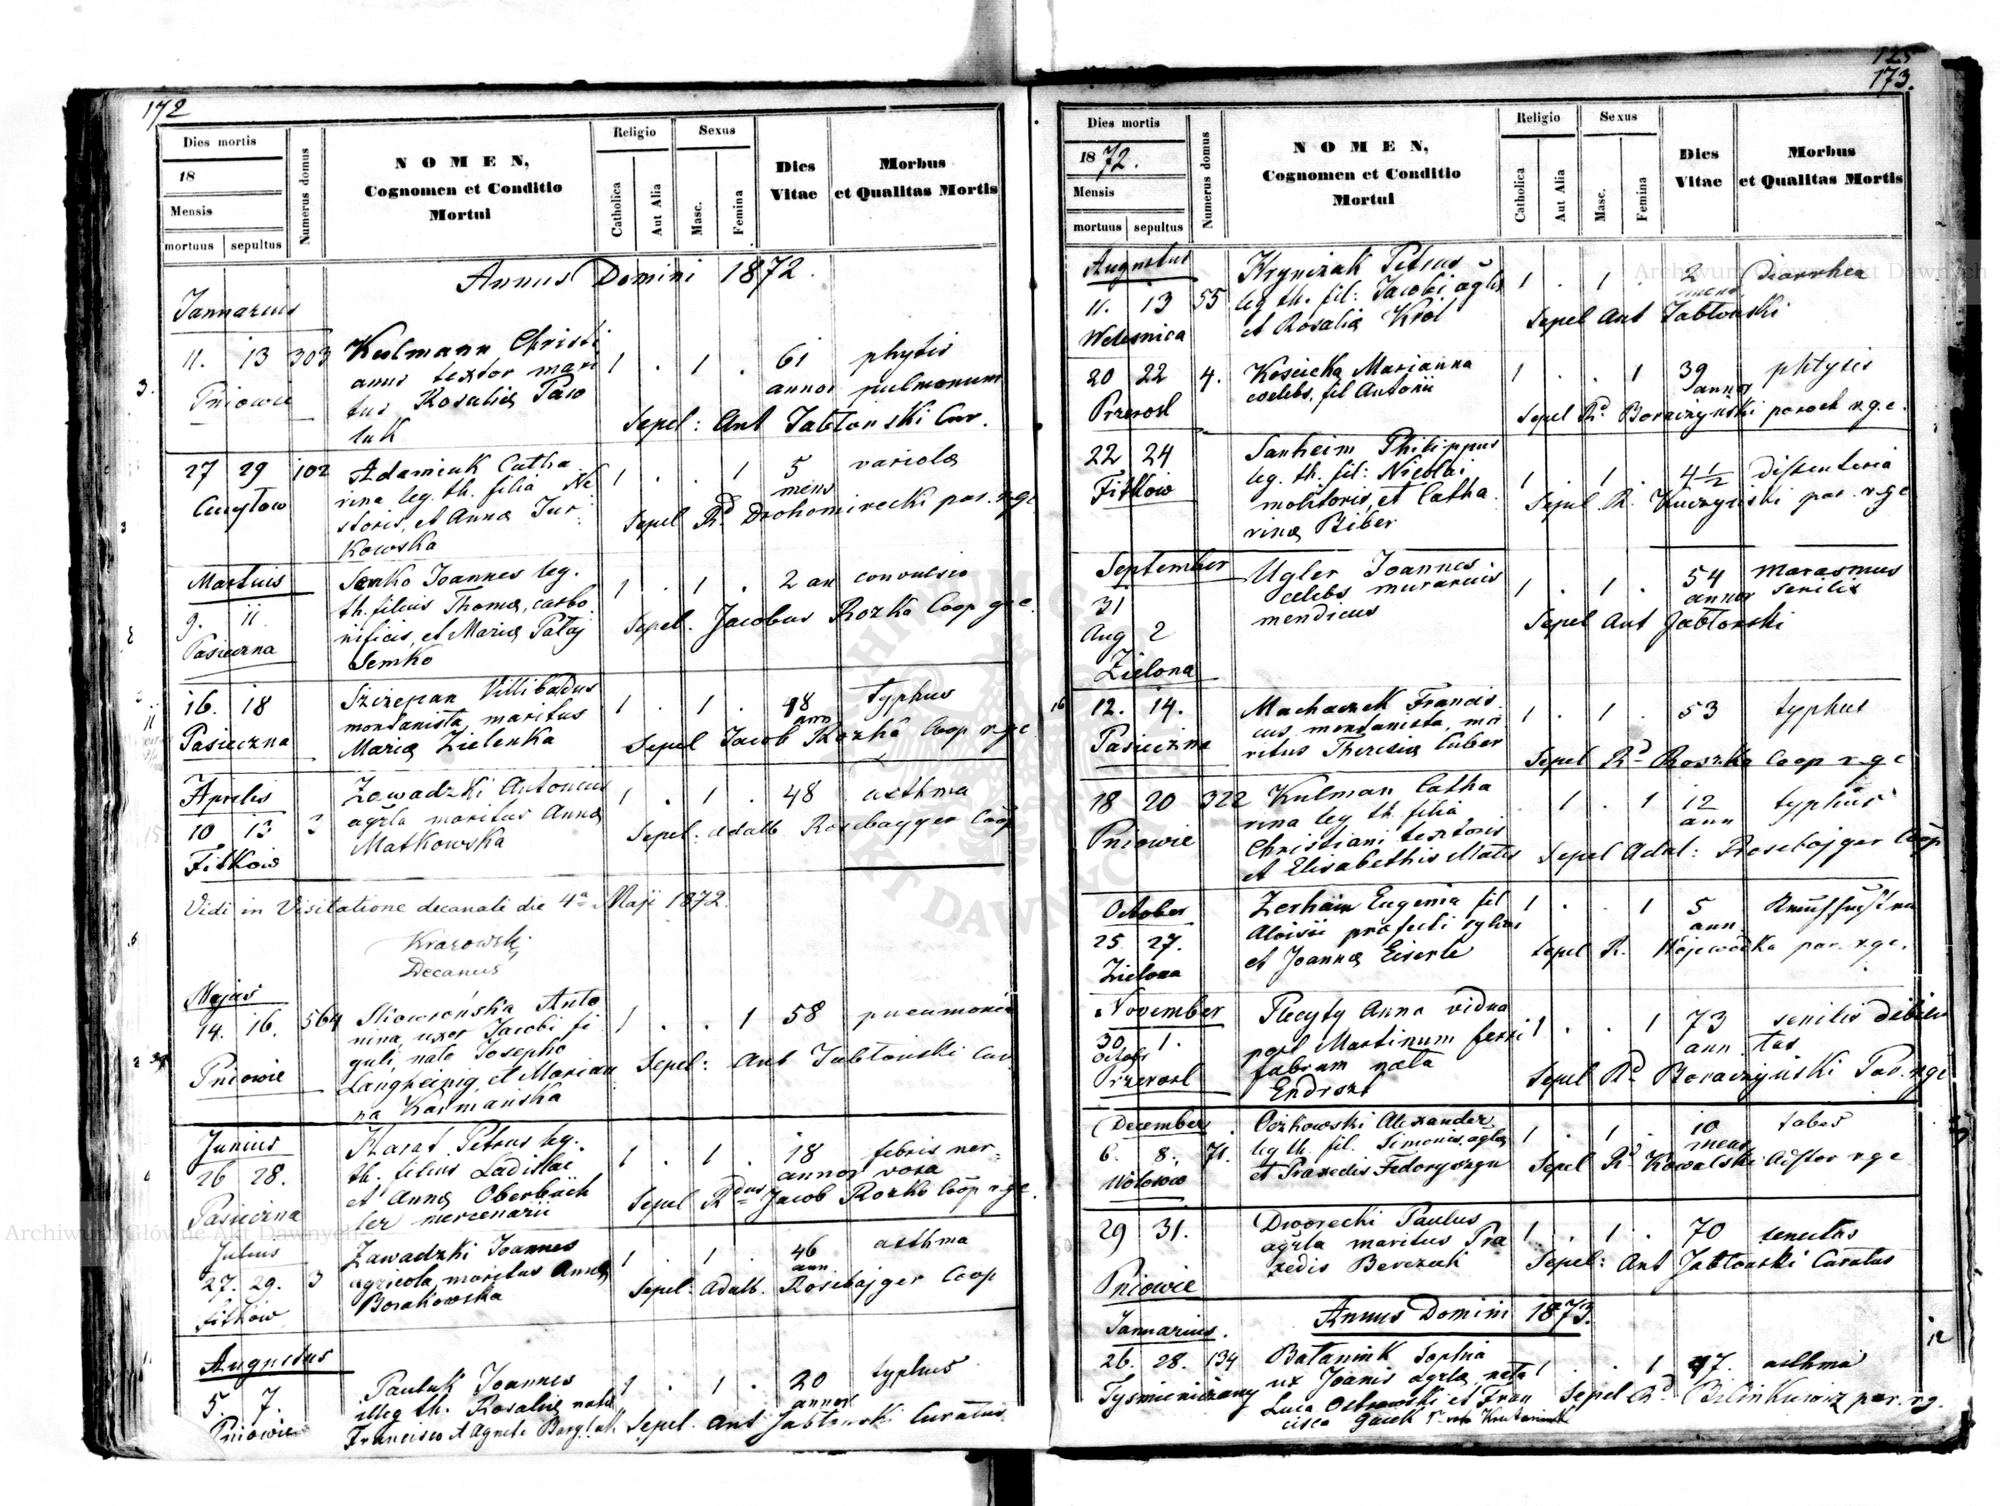 172
Dies mortis
18
Mensis
mortuus sepultus
Numerus domus
NOMEN,
Cognomen et Conditio
Mortui
Religio
Catholica
Aut Alia
Sexus
Masc.
Femina
Dies
Vitae
Morbus
et Qualitas Mortis
Annus Domini 1872.
Januarius
11. 13 303 Kulmann Christi 1 . 1 . 61 phtysis
Pniowie anus textor mari annor pulmonum
tus Rosaliæ Paw Sepel: Ant Jabłonski Cur.
luk
27 29 102 Adamiuk Catha 1 . . 1 5 variolæ
Cucyłow rina leg. th. filia Ne mens
storis, et Annæ Jur Sepel Rd Drohomirecki par. r.g.c
kowska
Martius Semko Joannes leg. 1 . 1 . 2 an convulsio
9. 11. th. filius Thomæ, carbo Sepel. Jacobus Rozko Coop g.r.c
Pasieczna nificis, et Mariæ Pataj
Semko
16. 18 Szczepan Villibaldus 1 . 1 . 48 typhus
Pasieczna montanista, maritus ann
Mariæ Zielenka Sepel Jacob Rozko Coop r.g.c
Aprilis Zawadzki Antonius 1 . 1 . 48 asthma
10 13 3 agrla maritus Annæ Sepel: Adalb Rosebajger Coop
Fitkow Matkowska
Vidi in Visitatione decanali die 4a Maji 1872.
Krasowski
Decanus
Majus
14. 16. 564 Anto 1 . . 1 58 pneumonia
Pniowie nina, uxor Jacobi fi
guli, nata Josepho Sepel: Ant Jabłonski Cur
Langheinig, et Marian
na Karmanska
Junius Harat Petrus leg. 1 . 1 . 18 febris ner-
26 28. th. filius Ladislai annor vosa
Pasieczna et Annæ Oberbäch Sepel Rdus Jacob Rozko Coop r.g.c.
ler mercenarii
Julius Zawadzki Joannes 1 . 1 . 46 asthma
27. 29. 3 agricola, maritus Annæ ann.
Fitkow Borakowska Sepel: Adalb. Rosebajger Coop
Augustus
5. 7. Pauluk Joannes 1 . 1 . 20 typhus
Pniowie illeg th. Rosaliæ nata annor
Francisco et Agnete Sepel. Ant Jabłonski Curatus
125
173.
Dies mortis
1872.
Mensis
mortuus sepultus
Numerus domus
NOMEN,
Cognomen et Conditio
Mortui
Religio
Catholica
Aut Alia
Sexus
Masc.
Femina
Dies
Vitae
Morbus
et Qualitas Mortis
Augustus Kryniżak Petrus 1 . 1 . 2 diarrhea
11. 13 55 leg th. fil: Jacobi agla mens
Welesnica et Rosaliæ Krol Sepel Ant Jabłonski
20 22 4. Kosiicka Marianna 1 . . 1 39 phtysis
Przerosl coelebs, fil Antonii annor
Sepel Rd Boraczynski paroch r.g.c.
22 24 Sanheim Philippus 1 . 1 . 4½ dissenteria
Fitkow leg. th. fil: Nicolai Sepel. R. Kuczynski par. r.g.c
molitoris, et Catha
rinæ Biber
September Ugler Joannes 1 . 1 . 54 marasmus
31 celebs murarius annor senilis
Aug 2 mendicus Sepel Ant Jabłonski
Zielona
12. 14. Machaczek Francis 1 . 1 . 53 typhus
Pasieczna cus montanista, ma
ritus Theresiæ Cuber Sepel Rd Roszko Coop r.g.c
18 20 322 Kulman Catha 1 . 1 12 typhus
Pniowie rina leg th. filia ann
Christiani textoris Sepel Adal: Rosebajger Coop
et Elisabethis Mates
October Zerhain Eugenia fil 1 . . 1 5
25. 27. Aloisii præfecti sylvar ann
Zielona et Joannæ Eiserle Sepel R. Wojewodka par. r.g.c.
November Plecyty Anna vidua 1 . . 1 73 senilis debili
30. 1. post Martinum ferri ann. tas
Octobr fabrum nata
Przerosl Endrozt Sepel Rd Boraczynski Par. r.g.c
December Oczkowski Alexander 1 . 1 . 10 tabes
6. 8. 71. leg th. fil. Simonis, agla mens
Wołosow et Praxedis Fedoryszyn Sepel Rd Kowalski Adstor r.g.c
29 31. Dworecki Paulus 1 . 1 . 70 senectus
agrla maritus Pra Sepel: Ant Jabłonski Curatus
Pniowie xedis Berezak
Annus Domini 1873.
Januarius.
26. 28. 134 Bataniuk Sophia 1 . . 1 47. asthma
Tysmieniczany ux Joanis agrla, nata Sepel Rd par. r.g.
Luca Ostrowski et Fran
cisca Gacek
12
Archiwum Główne Akt Dawnych
Archiwum Główne Akt Dawnych